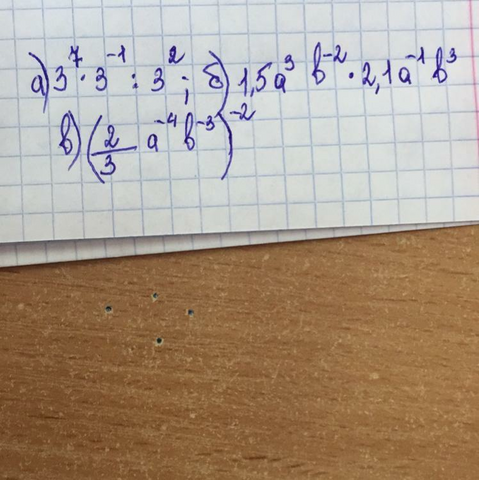 а) 3⁷ · 3⁻¹ : 3² ; б) 1,5a³ b⁻² · 2,1a⁻¹ b³
в) (2/3 a⁻⁴ b⁻³)⁻²